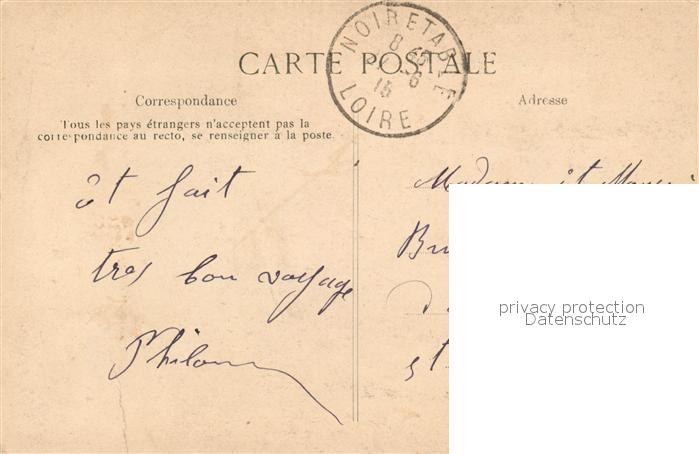 CARTE POSTALE
NOIRETABLE
8
6
15
LOIRE
Correspondance
Tous les pays étrangers n'acceptent pas la
correspondance au recto, se renseigner à la poste.
Adresse
fait
tres bon voyage
Madame et
privacy protection
Datenschutz